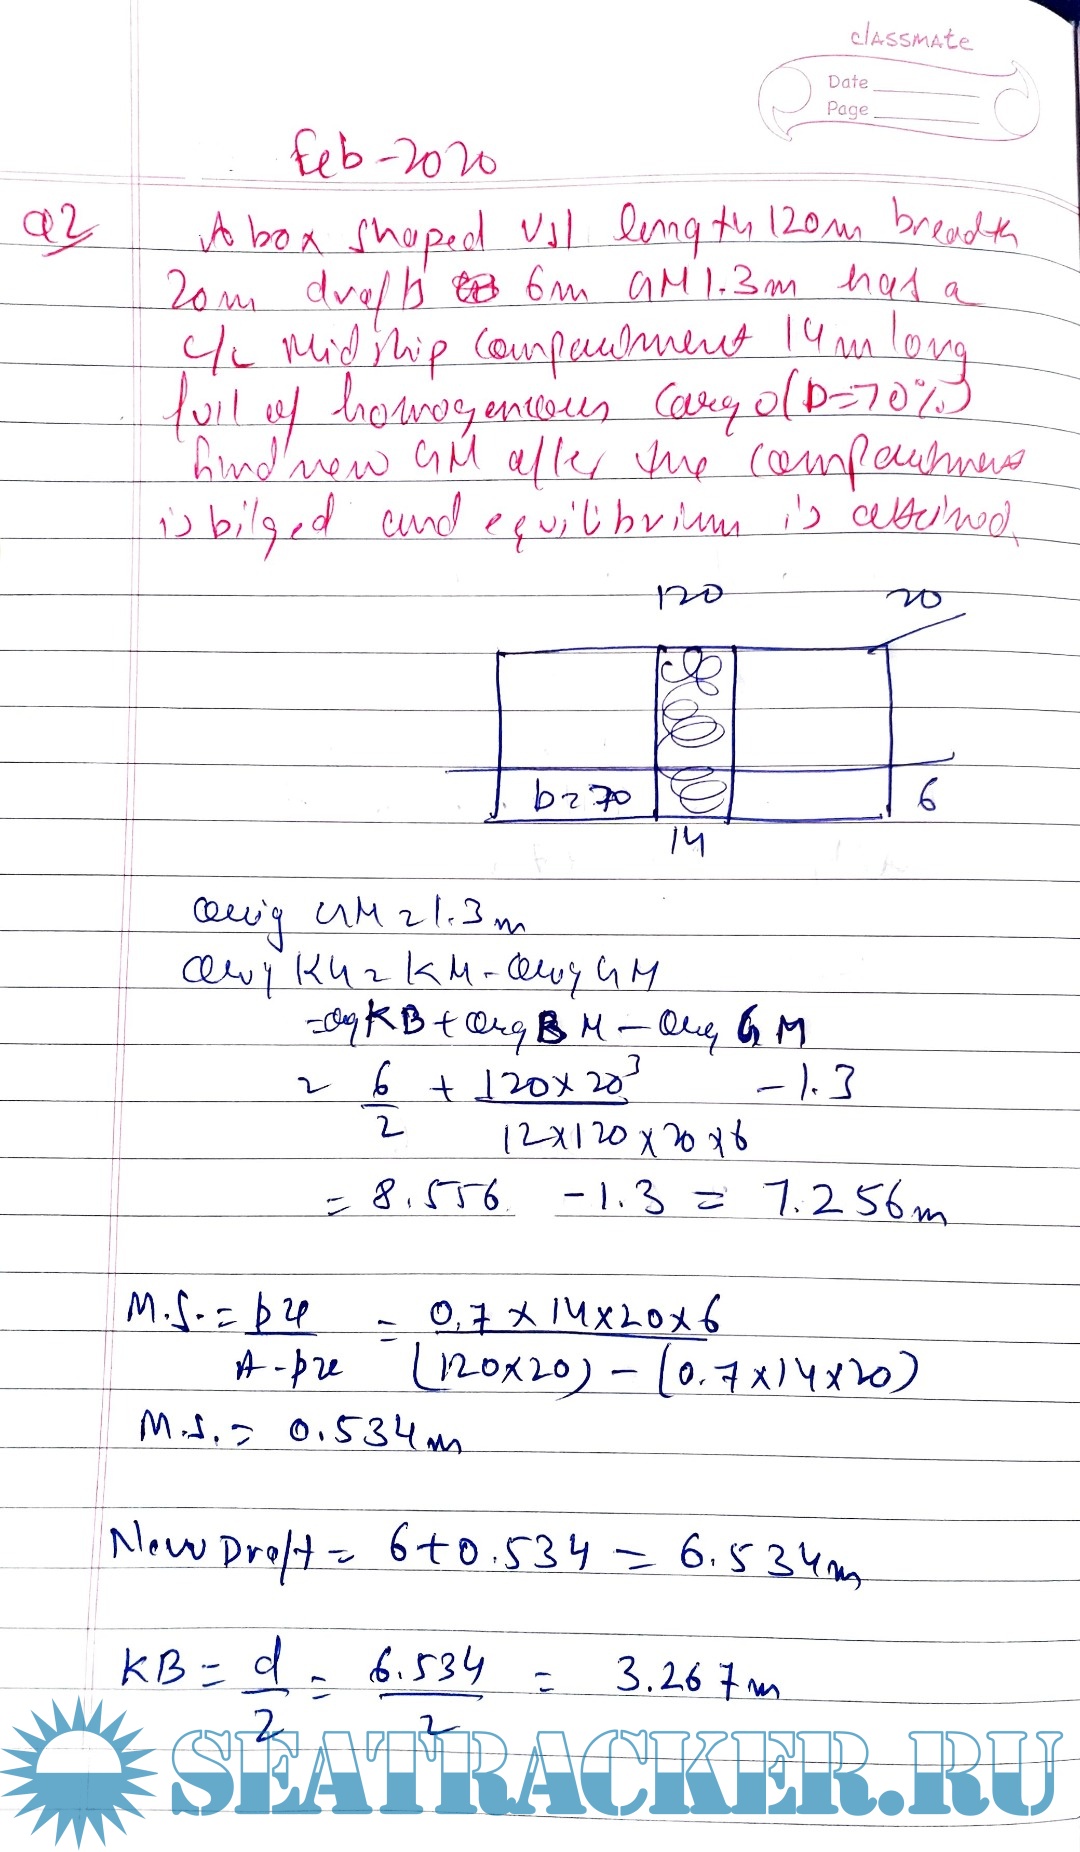 classmate
Date
Page
Feb-2020
Q2 A box shaped vsl length 120m breadth
20m draft 6m GM 1.3m has a
c/L Midship compartment 14m long
full of homogeneous cargo (P=70%)
find new GM after the compartment
is bilged and equilibrium is attained
120 20
b=70 6
14
Orig GM = 1.3m
Orig KG = KM - Orig GM
= Org KB + Org BM - Org GM
= 6/2 + 120 x 20³/12 x 120 x 20 x 6 - 1.3
= 8.556 - 1.3 = 7.256m
M.S. = pve/A-pre = 0.7 x 14 x 20 x 6/(120x20) - (0.7 x 14 x 20)
M.S. = 0.534m
New Draft = 6+0.534 = 6.534m
KB = d/2 = 6.534/2 = 3.267m
SEATRACKER.RU